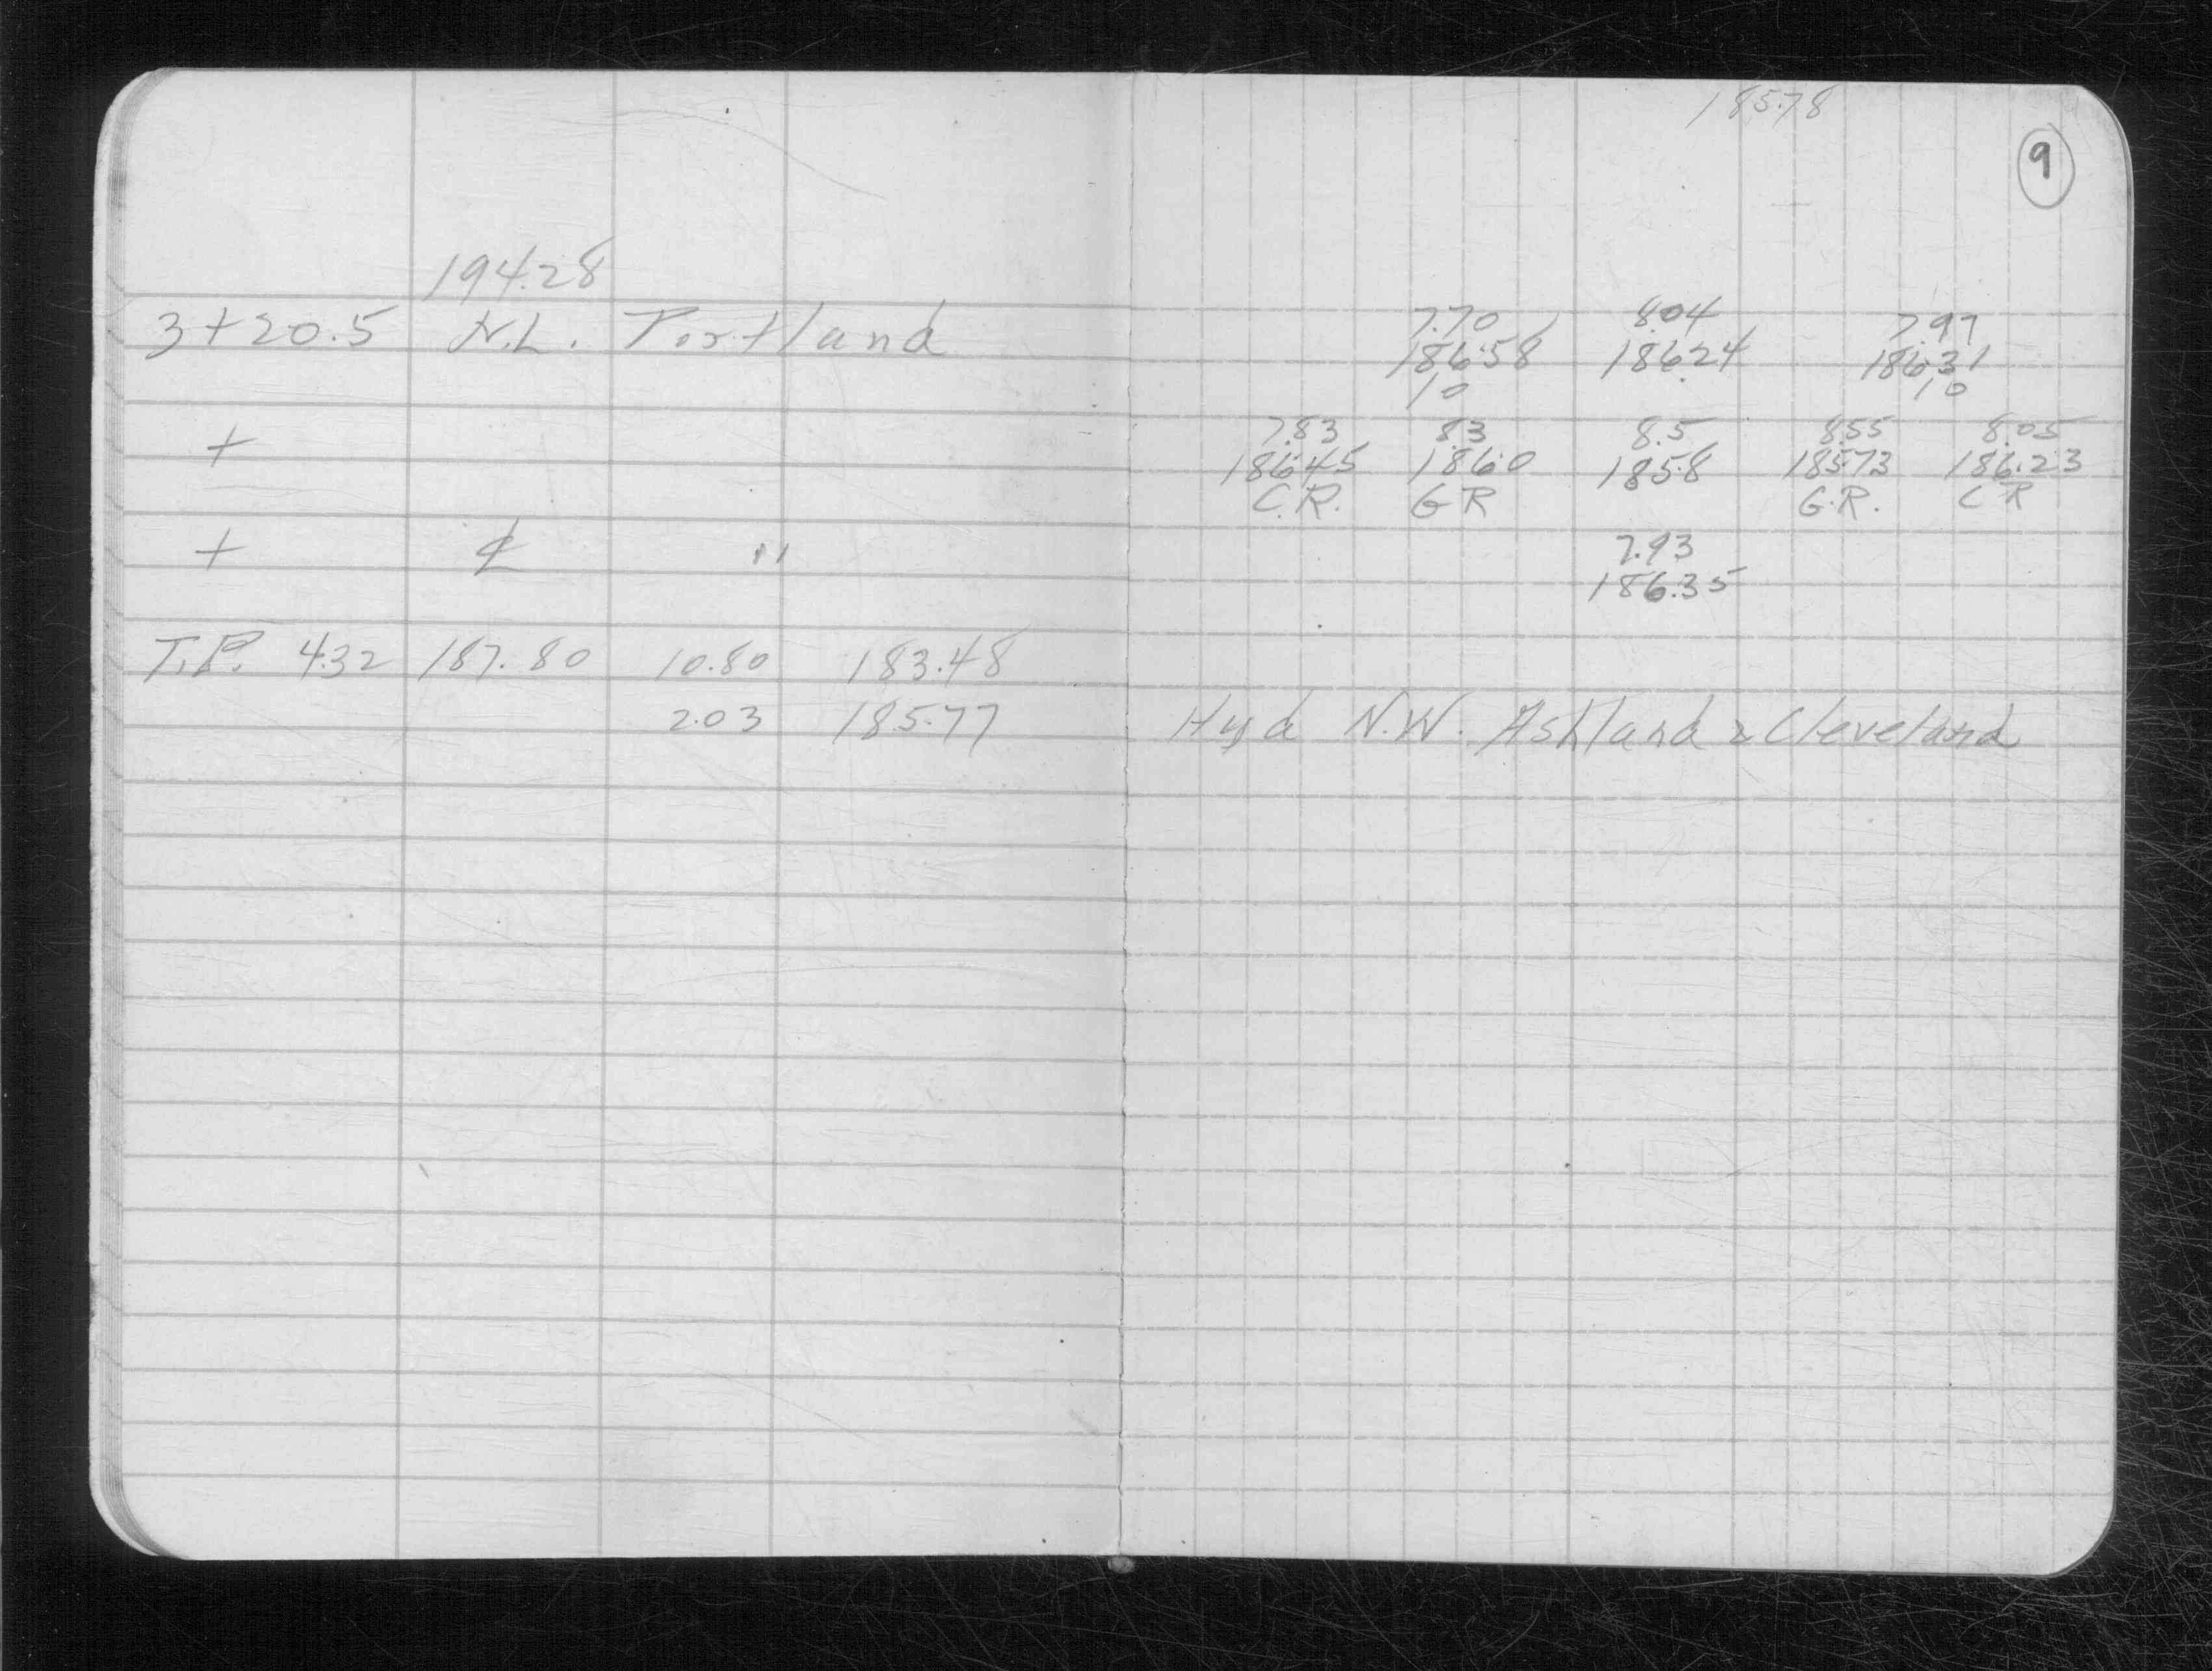 185.78
9
194.28
3+20.5 N.L. Portland
7.70 8.04 7.97
186.58 186.24 186.31
10 10
+
7.83 8.3 8.5 8.55 8.05
186.45 186.0 185.8 185.73 186.23
C.R. GR G.R. CR
+ ℄ "
7.93
186.35
T.P. 4.32 187.80 10.80 183.48
2.03 185.77 Hyd N.W. Ashland & Cleveland